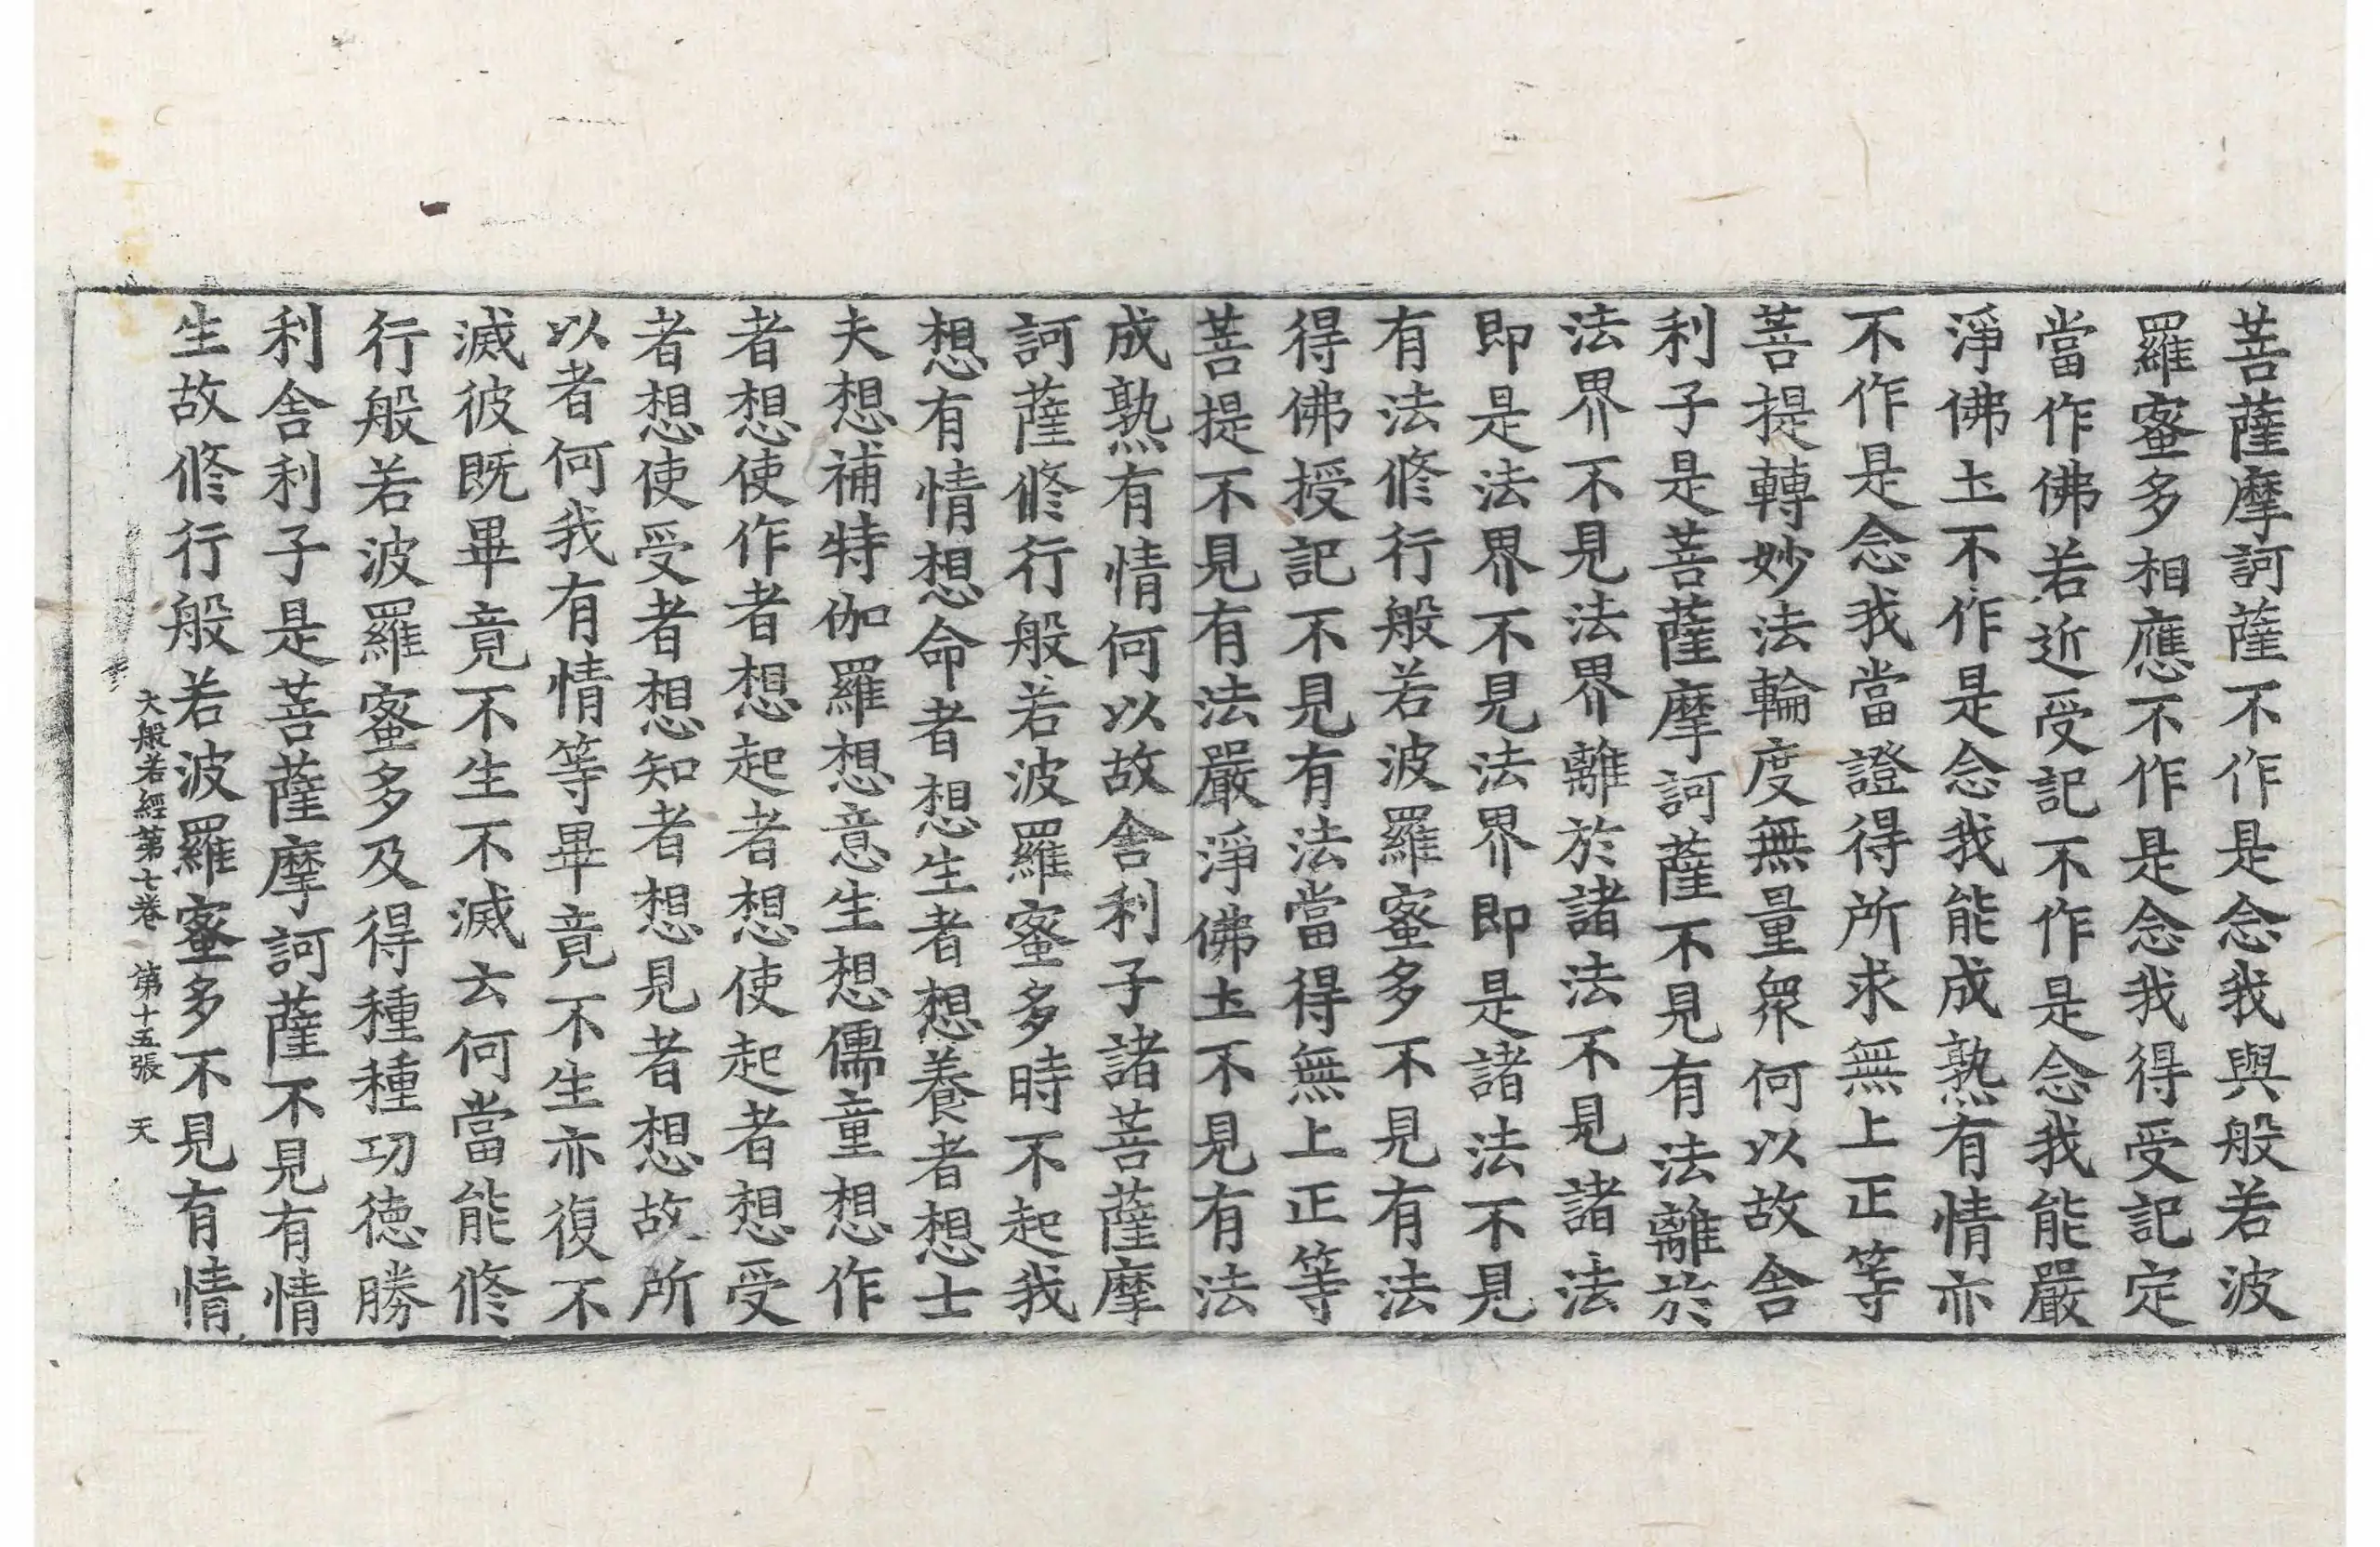 菩薩摩訶薩不作是念我與般若波
羅蜜多相應不作是念我得受記定
當作佛若近受記不作是念我能嚴
淨佛土不作是念我能成熟有情亦
不作是念我當證得所求無上正等
菩提轉妙法輪度無量衆何以故舍
利子是菩薩摩訶薩不見有法離於
法界不見法界離於諸法不見諸法
即是法界不見法界即是諸法不見
有法修行般若波羅蜜多不見有法
得佛授記不見有法當得無上正等
菩提不見有法嚴淨佛土不見有法
成熟有情何以故舍利子諸菩薩摩
訶薩修行般若波羅蜜多時不起我
想有情想命者想生者想養者想士
夫想補特伽羅想意生想儒童想作
者想使作者想起者想使起者想受
者想使受者想知者想見者想故所
以者何我有情等畢竟不生亦復不
滅彼既畢竟不生不滅云何當能修
行般若波羅蜜多及得種種功德勝
利舍利子是菩薩摩訶薩不見有情
生故修行般若波羅蜜多不見有情
大般若經第七卷 第十五張 天